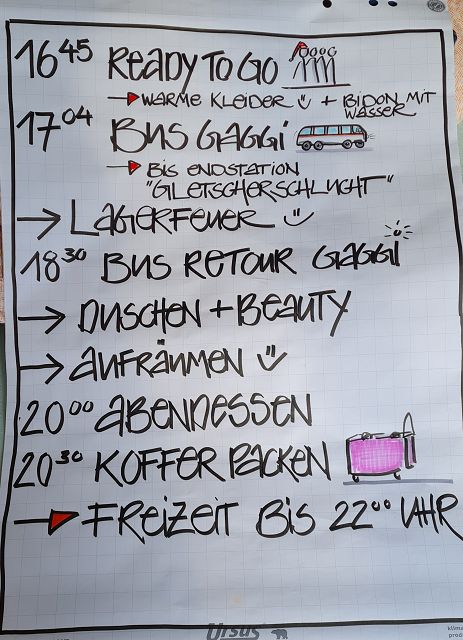 16 45 READY TO GO
→ WARME KLEIDER + BIDON MIT WASSER
17 04 BUS GAGGI
→ BIS ENDSTATION
"GLETSCHERSCHLUCHT"
→ LAGERFEUER
18 30 BUS RETOUR GAGGI
→ DUSCHEN + BEAUTY
→ AUFRÄUMEN
20 00 ABENDESSEN
20 30 KOFFER PACKEN
→ FREIZEIT BIS 22 00 UHR
Ursus